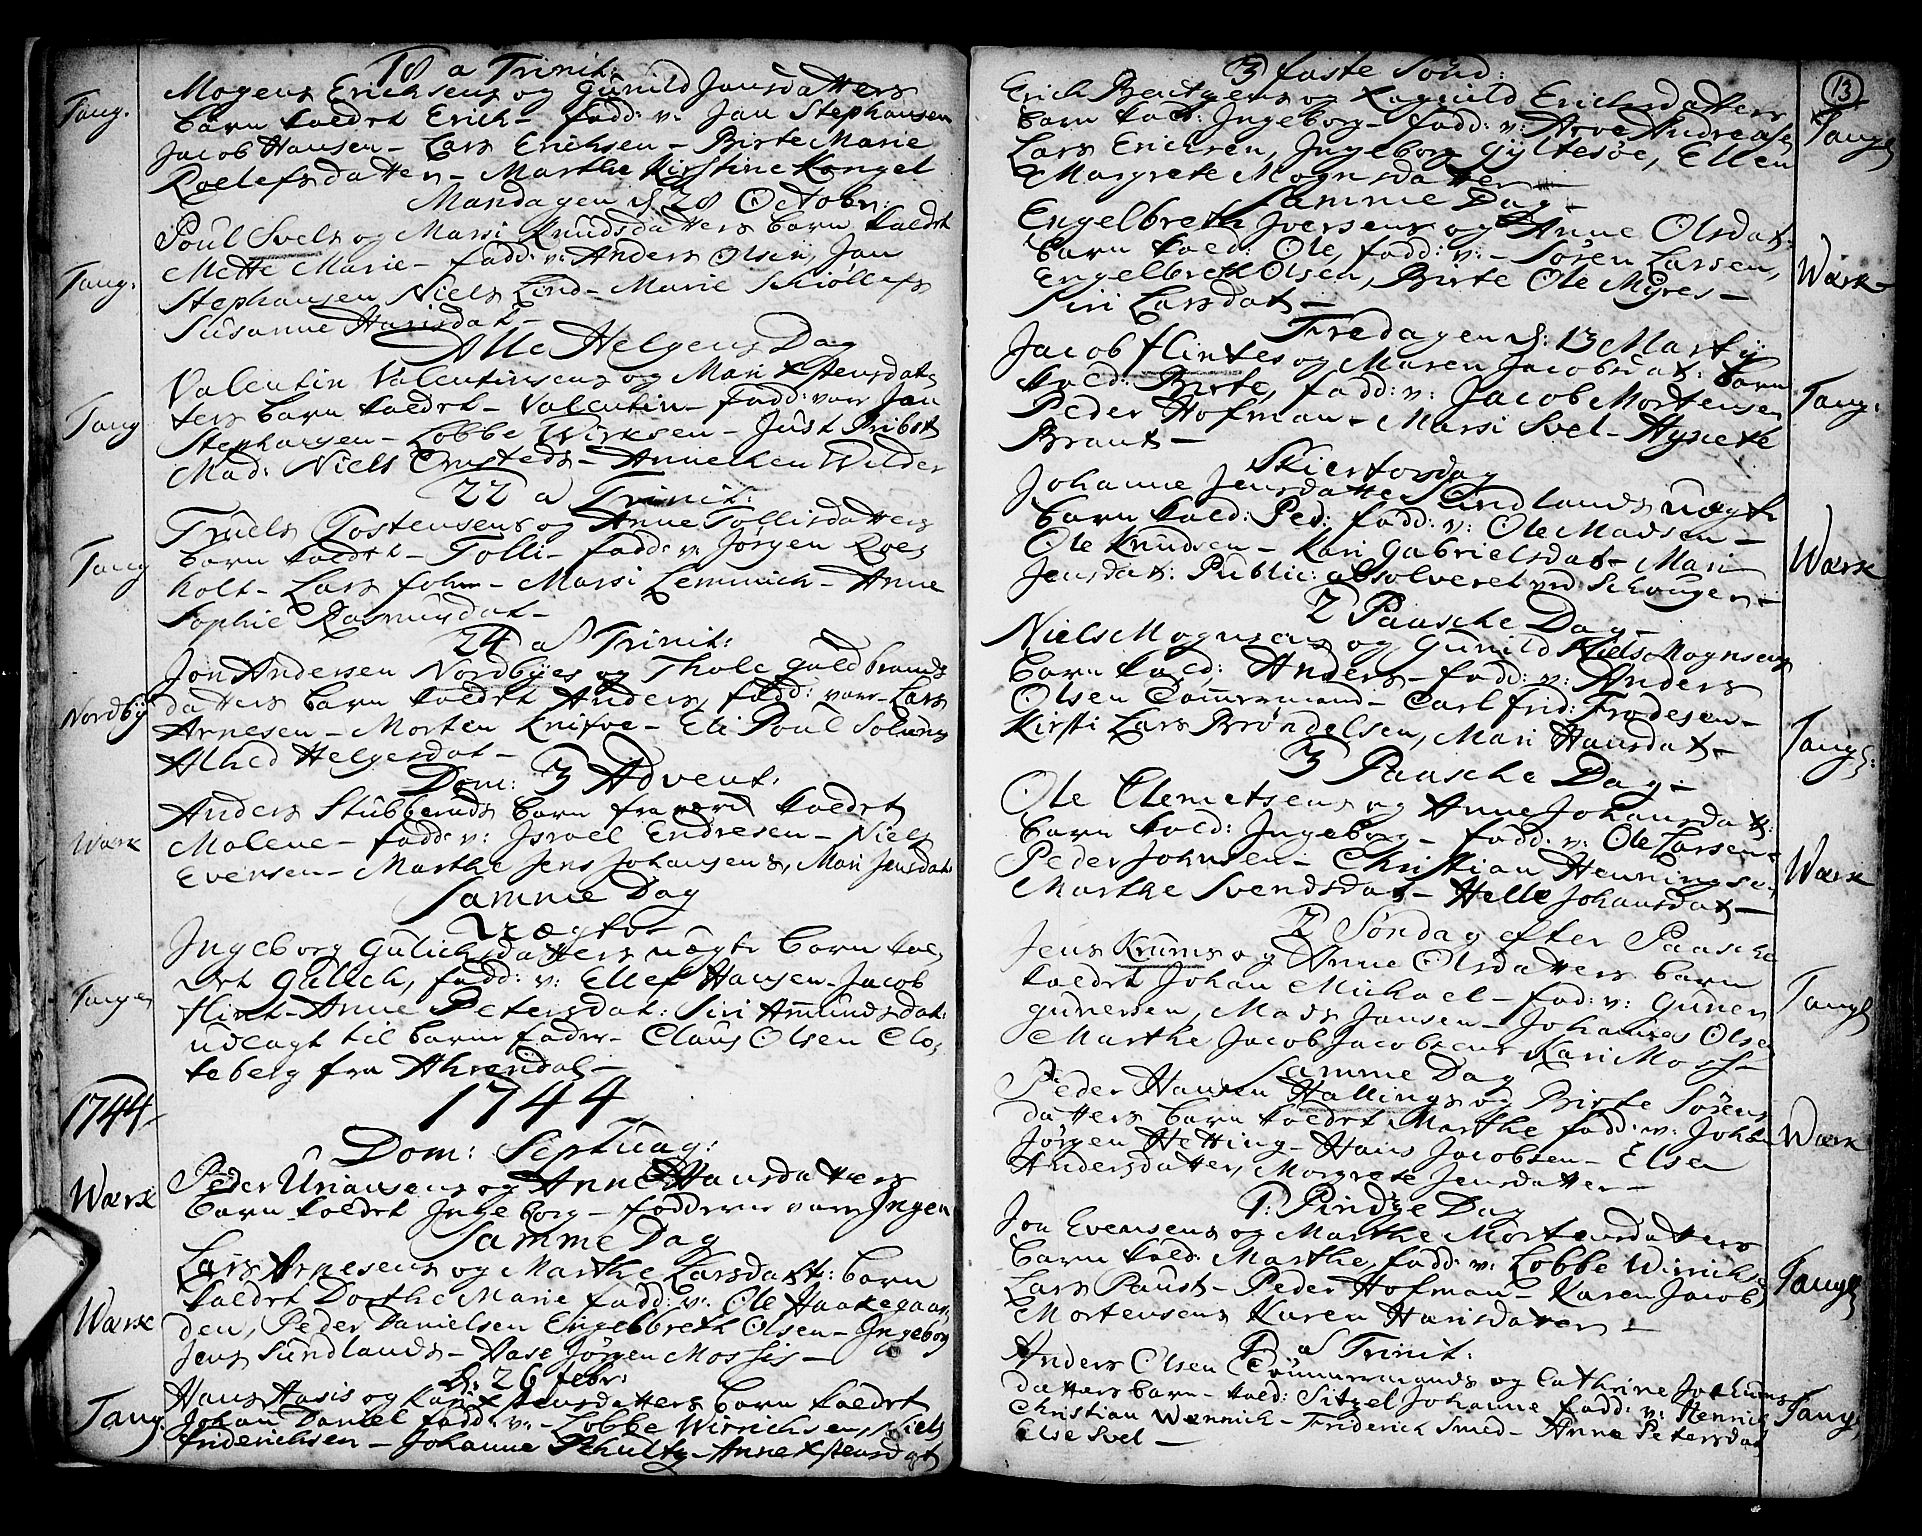 18 a Trinit:
Tang. Mogens Erichsens og Gunild Jansdatters
barn kaldet Erich – fadd: v: Jan Stephansen
Jacob Hansen – Lars Erichsen – Birte Marie
Roelefsdatter – Marthe Kirstine Kongel
Mandagen d. 28 Octobr:
Poul Svels og Marsi Knudsdatters barn kaldet
Tang: Mette Marie – fadd: v: Anders Olsen, Jan
Stephansen, Niels Lind – Marie Schiøllefs
Susanne Hansdat –
Alle Helgens Dag
Valentin Valentinsens og Mari Xstensdat
Tang ters barn kaldet – Valentin – fadd: vare Jan
Stephansen – Lobbe Wirksen – Just Pribst
Mad: Niels Ornsteds – Annechen Wilder
22 a Trinit:
Truels Tostensens og Anne Tollisdatters
Tang barn kaldet – Tolli – fadd: v: Jørgen Roes
holt – Lars fohn – Marsi Lemmich – Anne
Sophie Rasmusdat –
24 a Trinit:
Jon Andersen Nordbyes og Thole guldbrands
Nordbÿ datters barn kaldet Anders, fadd: vare – Lars
Arnesen – Morten Knifve – Eli Poul Solungs
Alhed Helgesdat –
Dom: 3 Advent:
Anders Stubberuds barn fra kaldet
Wark Malene – fadd: v: Israel Endresen – Niels
Evensen – Marthe Jens Johansens, Mari Jensdat
Samme Dag
Uægte
Ingeborg Gulichsdatters uægte barn kal
det Gulich, fadd: v: Ellef Hansen – Jacob
Tangen flint – Anne Petersdat: Siri Amundsdat:
udlagt til barne fader – Claus Olsen Clo,
teberg fra Ahrendal –
1744 1744
Dom: Septuag:
Peder Uriansens og Anne Hansdatters
Wark barn kaldet Ingeborg – fadderne vare Ingen
Samme Dag
Lars Arnesens og Marthe Larsdatt: barn
kaldet Dorthe Marie fadd: v: Ole Haakegaar
Wark den, Peder Danielsen Engelbreth Olsen – Ingeborg
Jens Sundlands – Aase Jørgen Mossis –
d: 26 febr:
Hans Hasis og Kari Xstensdatters barn kaldet
Tang: Johan Daniel fadd: v: – Lobbe Wirrichsen, Niels
friderichsen – Johanne Schultz – Anne Xstensdat
13
3 faste Sønd:
Erich Bentzens og Ragnild Erichsdatters
barn kald: Ingeborg – fadd: v: Arve Andreas
Tangen
Lars Erichsen, Ingeborg Gyltesøe, Ellen
Margrete Mognsdatter –
Samme Dag –
Engelbreth Iversens og Anne Olsdat:
barn kald: Ole, fadd: v: – Søren Larsen,
Wark –
Engelbret Olsen, Birte Ole Myres –
Siri Larsdat –
Fredagen d: 13 Martij
Jacob flintes og Maren Jacobsdat: barn
kald: Birte, fadd: v: Jacob Mortensen
Tang:
Peder Hofman – Marsi Svel –
Brant –
Skiertorsdag
Johanne Jensdatter Sundlands uægte
barn kald: Ped: fadd: v: Ole Madsen –
Wark
Ole Knudsen – Kari Gabrielsdat – Mari
Jensdat: Public: absolveret
2 Paasche Dag –
Niels Mognsens og Gunild Niels Mognsens
barn kald: Anders – fadd: v: Anders
Olsen Tømmermand – Carl frid: Frodesen –
Tangen:
Kirsti Lars Brøndelsen, Mari Hansdat –
3 Paasche Dag –
Ole Clemetsens og Anne Johansdatt:
barn kald: Ingeborg – fadd: v: Ole Larsen –
Wark
Peder Johnsen – Christian Henningsen,
Marthe Svendsdat – Helle Johansdat –
2 Søndag efter Paasche
Jens Krums og Anne Olsdatters barn
kaldet Johan Michael – fad: v: Guner
Tangen
gunersen, Mads Jansen – Johannes Olsen
Marthe Jacob Jacobsens Kari Moss –
Samme Dag
Peder Hansen Hallings og Birte Sørens
datters barn kaldet Marthe fadd: v: Johan
Wark
Jørgen Hetting – Hans Jacobsen – Elsen
Andersdatter, Margrete Jensdatter –
1: Pindze Dag
Jon Evensens og Marthe Mortensdatters
barn kald: Marthe, fadd: v: Lobbe Wirrichs
Tangen
Lars Paust – Peder Hofman – Karen Jacob
Mortensens Karen Hansdatter –
1 a Trinit:
Anders Olsen Tømmermands og Cathrine Jochums
datters barn – kald: Sitzel Johanne fadd: v: Henrich
Tang:
Christian Wennich – Friderich Smed – Anne Petersdat
Else Svel –